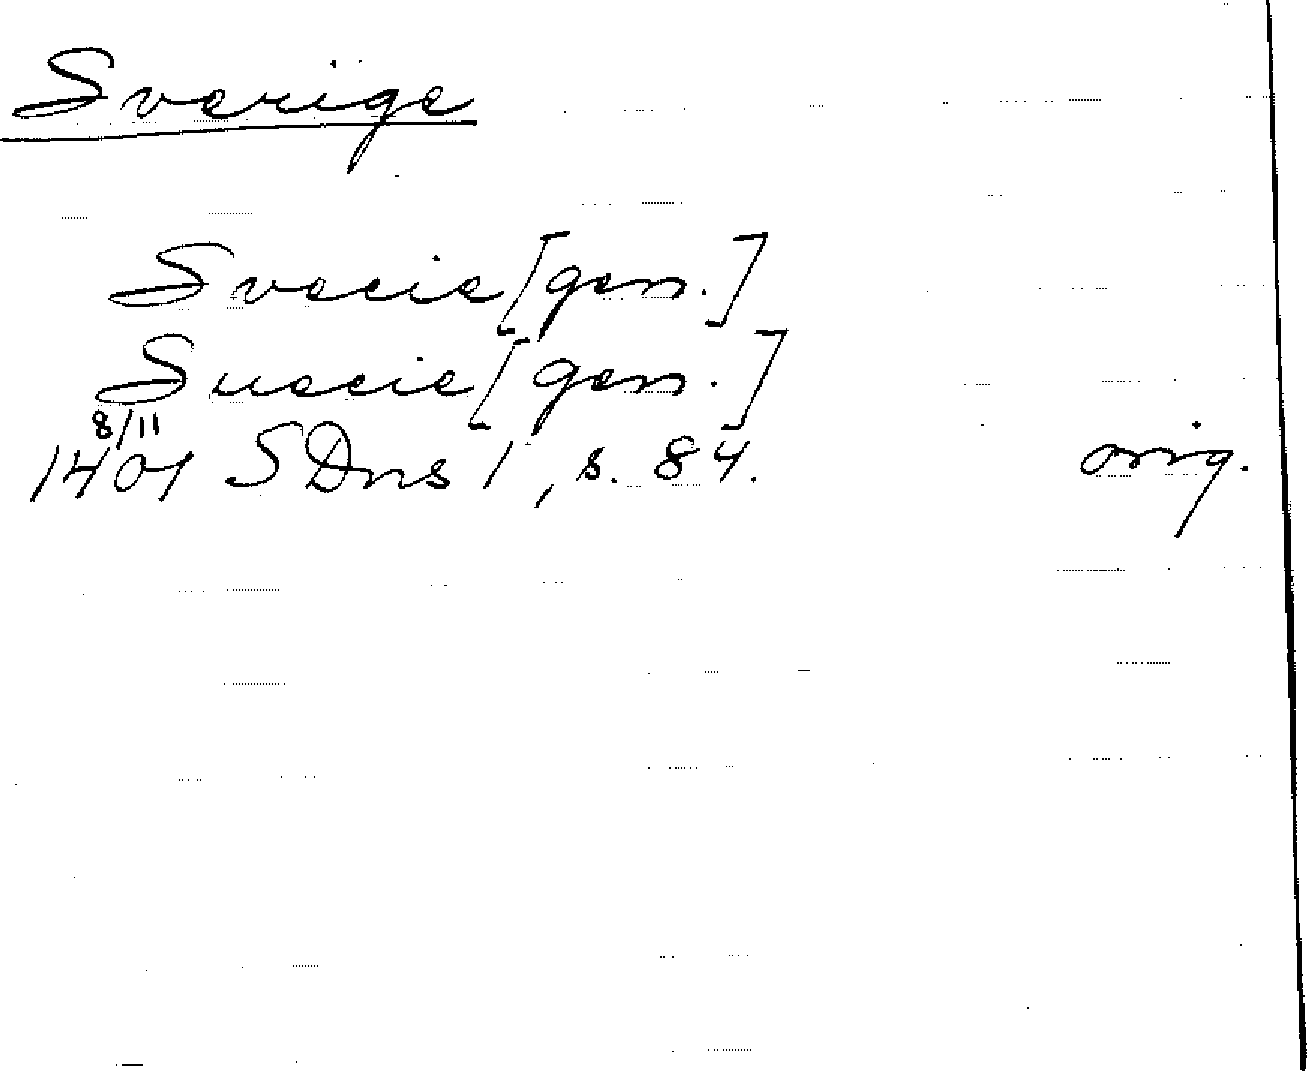 Sverige
Svecie [gen.]
Suecie [gen.]
8/11
1401 SDns 1, s. 84. orig.